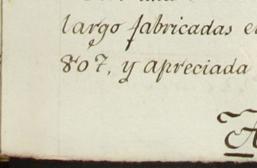 largo fabricadas e
807, y apreciada